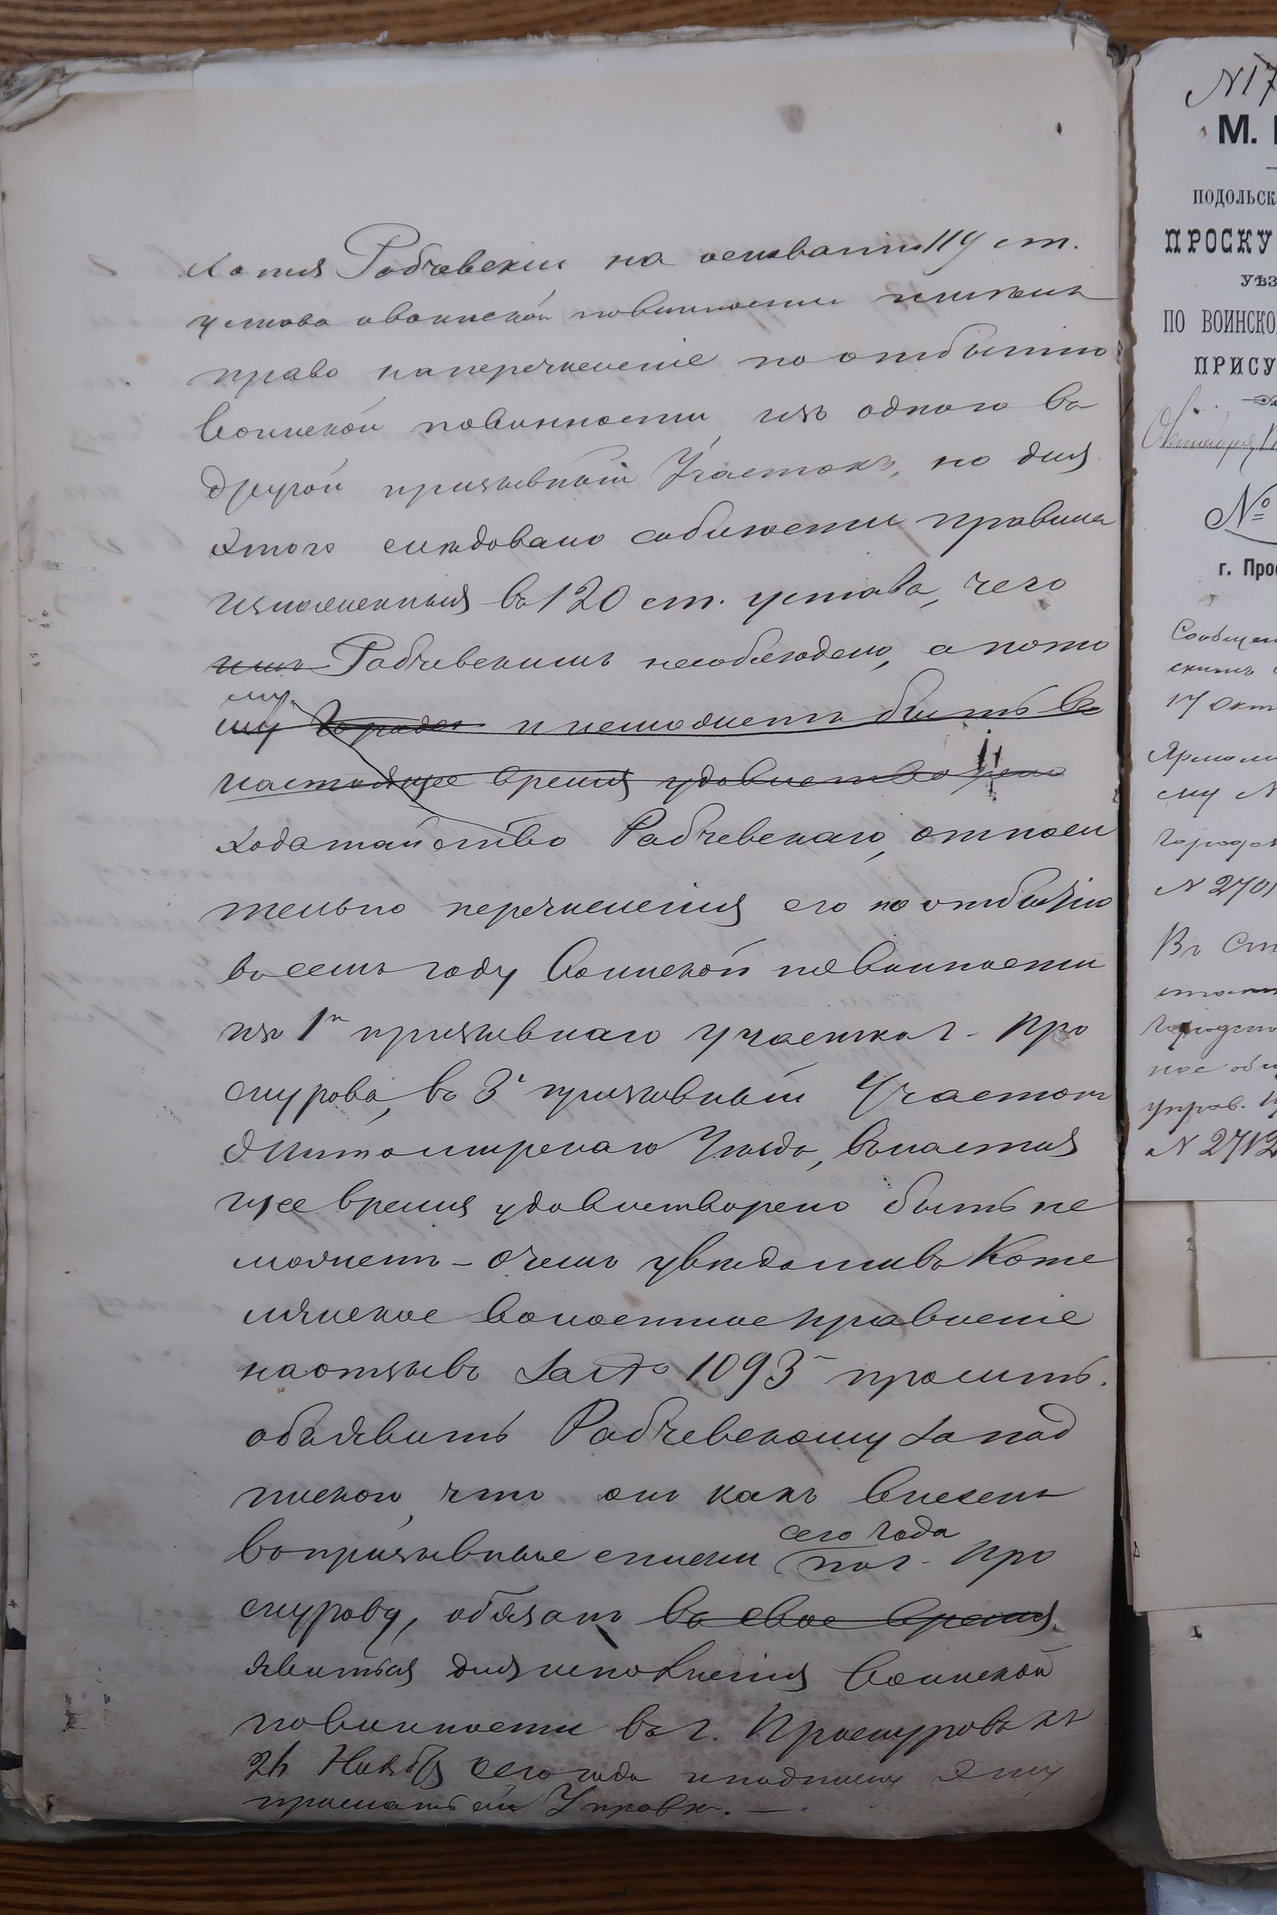 хотя Рабчевскій на основаніи 119 ст.
устава о воинской повинности имѣлъ
право на перечисленіе по отбытію
воинской повинности изъ одного въ
другой призывный Участокъ, но для
этого слѣдовало соблюсти правила
изложенныя въ 120 ст. устава, чего
имъ Рабчевскимъ несоблюдено, а пото
му
му и неможетъ быть въ
настоящее время удовлетворено
ходатайство Рабчевскаго, относи
тельно перечисленія его по отбытію
въ семъ году воинской повинности
изъ 1го призывнаго участка г. Про
скурова, въ 3й призывный Участокъ
Житомирскаго Уѣзда, въ настоя
щее время удовлетворено быть не
можетъ – о чемъ увѣдомивъ Коте
лянское волостное правленіе
на отзывъ за № 1093 просить
объявить Рабчевскому за под
пиской, что онъ какъ внесенъ
въ призывные списки по г. Про
сего года
скурову, обязанъ въ свое время
явиться для исполненія воинской
повинности въ г. Проскуровъ къ
Ноября сего года и подписку эту
прислать сей Управѣ. —
N 17
М.
ПОДОЛЬСК
ПРОСКУ
УѢЗ
ПО ВОИНСКО
ПРИСУ
Октября
№
г. Про
Сообщен
скимъ
17 Окт
Ярмоли
ску N
Городов
N 2701
Въ Ст
Городск
ное общ
управ.
N 2712